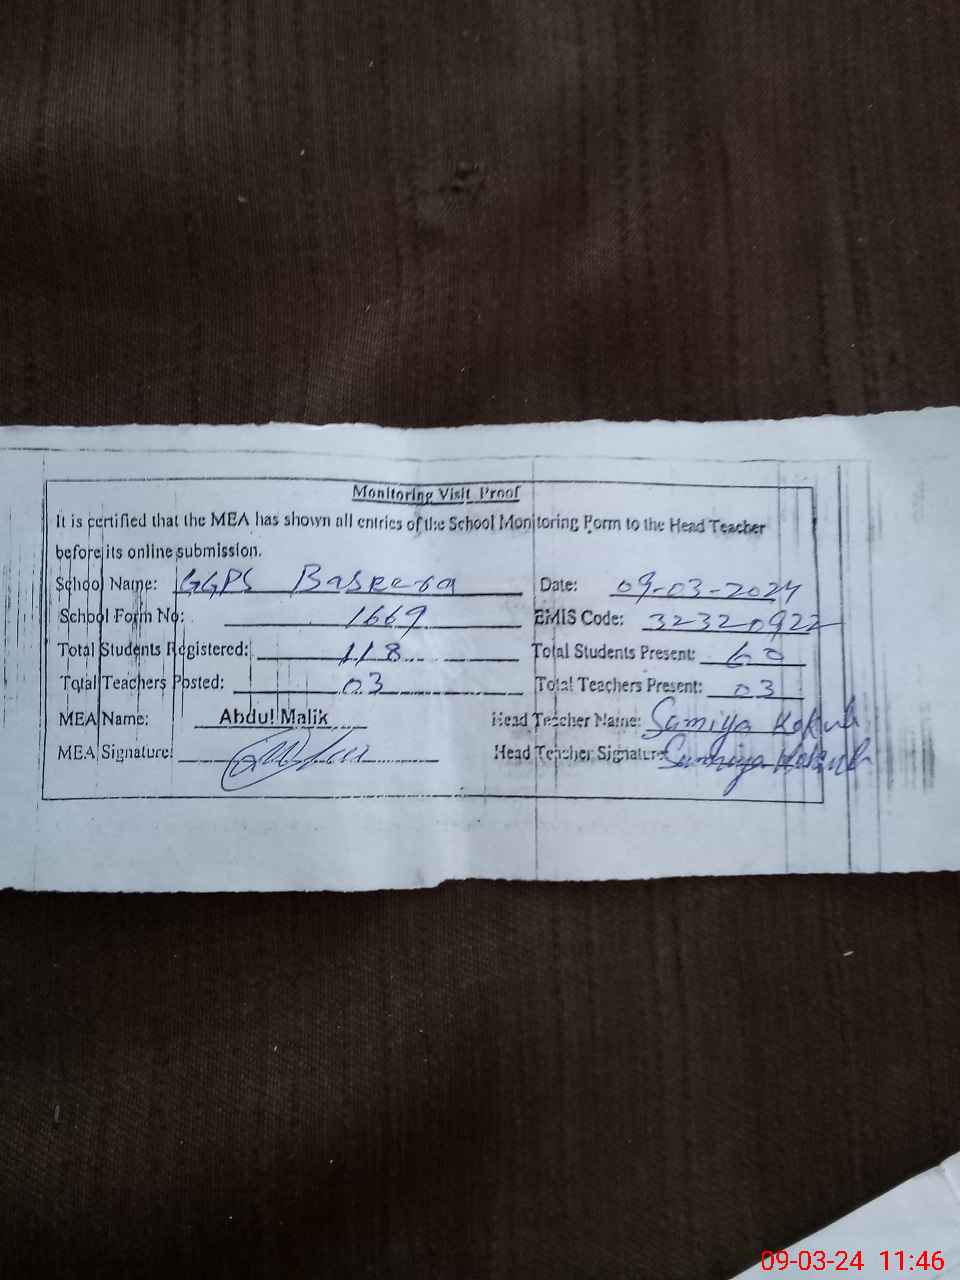 Monitoring Visit Proof
It is certified that the MEA has shown all entries of the School Monitoring Form to the Head Teacher
before its online submission.
School Name: GGPS Baseera Date: 09-03-2024
School Form No: 1669 EMIS Code: 32320922
Total Students Registered: 118 Total Students Present: 60
Total Teachers Posted: 03 Total Teachers Present: 03
MEA Name: Abdul Malik Head Teacher Name: Samiya
MEA Signature: Head Teacher Signature: Samiya
09-03-24 11:46